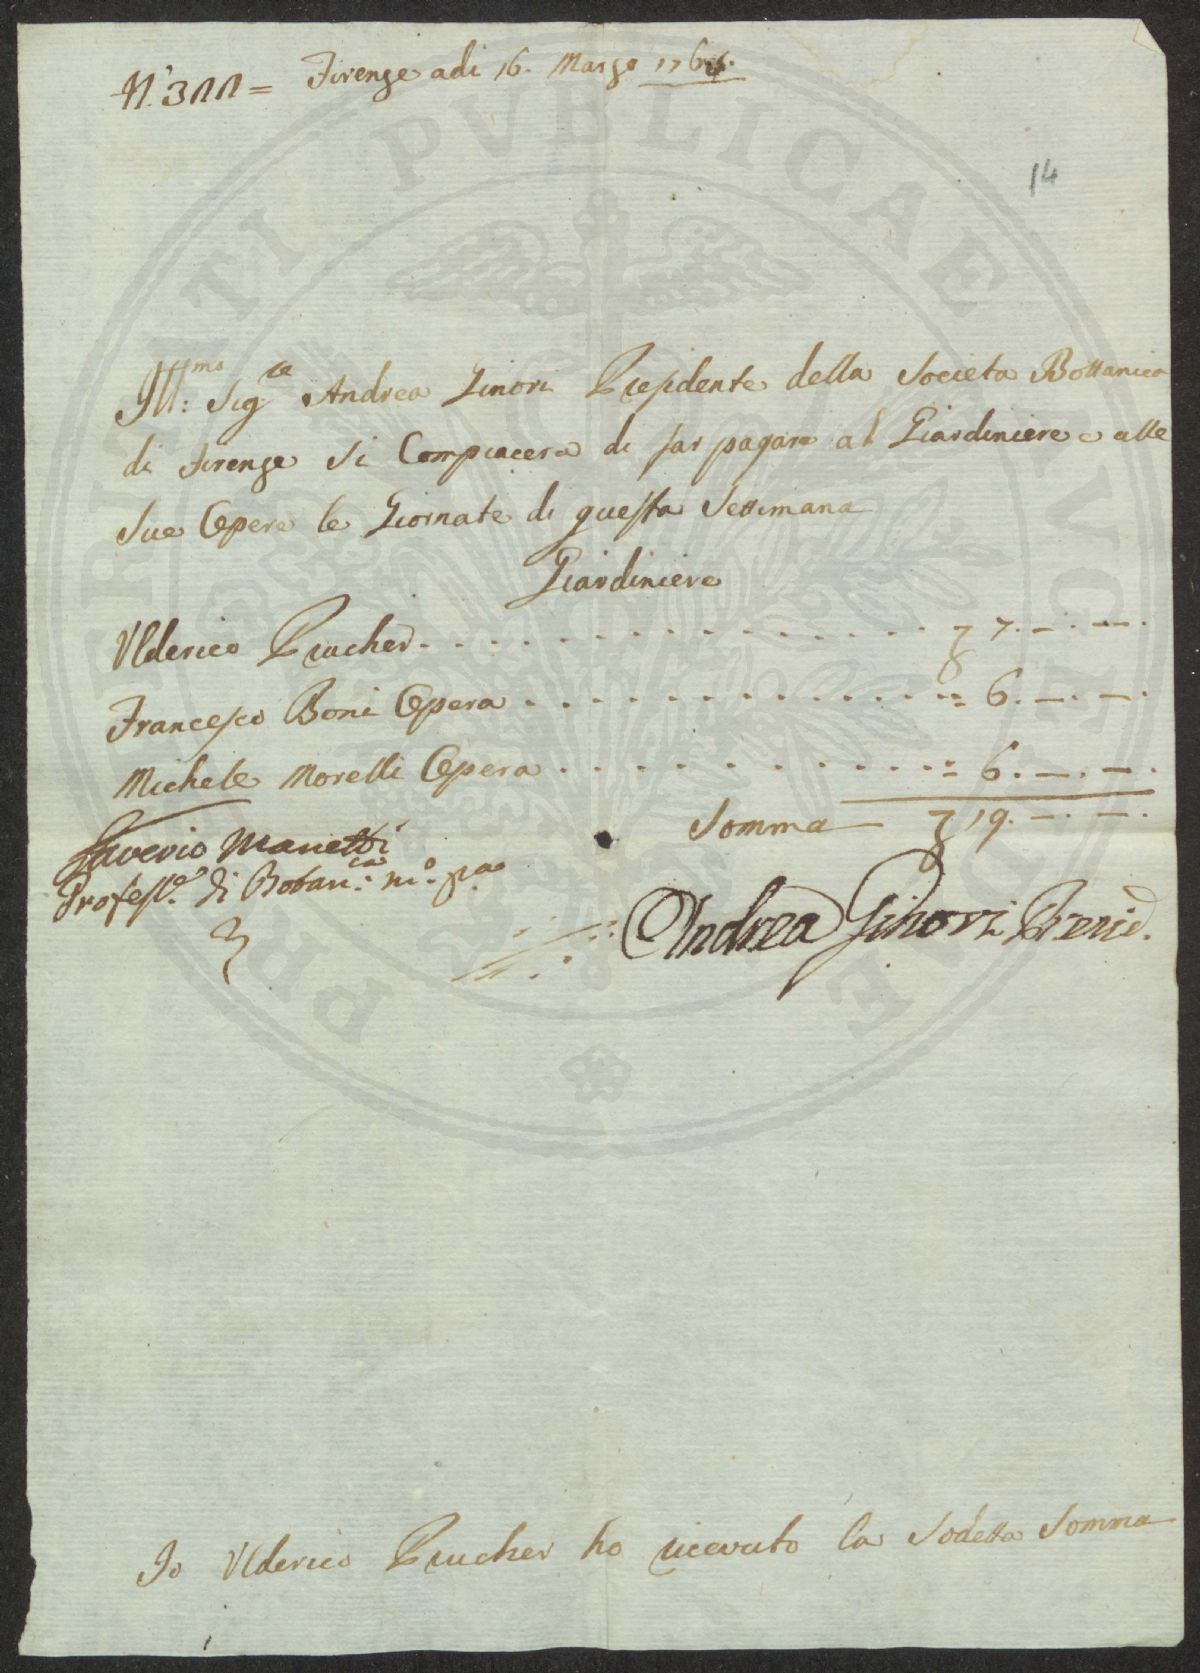 N.° 311 = Firenze adi 16. Marzo 176
14
Ill:mo Sigre Andrea Ginori Presidente della Societa Bottanica
di Firenze si Compiacera di far pagare al Giardiniere e alle
sue Opere le Giornate di questa Settimana
Giardiniere
Ulderico Prucher . . . . . . . . . . . . . . . . 7. —. —.
Francesco Boni Opera . . . . . . . . . . . . . = 6. —. —.
Michele Morelli Opera . . . . . . . . . . . . = 6. —. —.
Somma — 19. —. —.
Saverio Manetti
Profess.e di Botan.ca m.o p.a
Andrea Ginori Presid.
Io Ulderico Prucher ho ricevuto la Sodetta Somma
PRIVATI PVBLICAE QVE